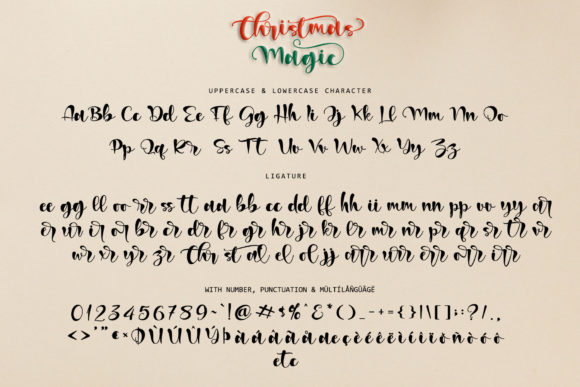 Christmas
Magic
UPPERCASE & LOWERCASE CHARACTER
Aa Bb Cc Dd Ee Ff Gg Hh Ii Jj Kk Ll Mm Nn Oo
Pp Qq Rr Ss Tt Uu Vv Ww Xx Yy Zz
LIGATURE
ee gg ll oo rr ss tt aa bb cc dd ff hh ii mm nn pp vo yy ar
er ur ir or br cr dr fr gr hr jr kr lr mr nr pr qr sr tr vr
wr xr yr zr Chr st al el ol jj arr urr err orr irr
WITH NUMBER, PUNCTUATION & MÜLTÍLÅÑGÜÃGË
0123456789~`!@#$%^&*()_-+={}|\[]:;?/.,
<>'"
etc